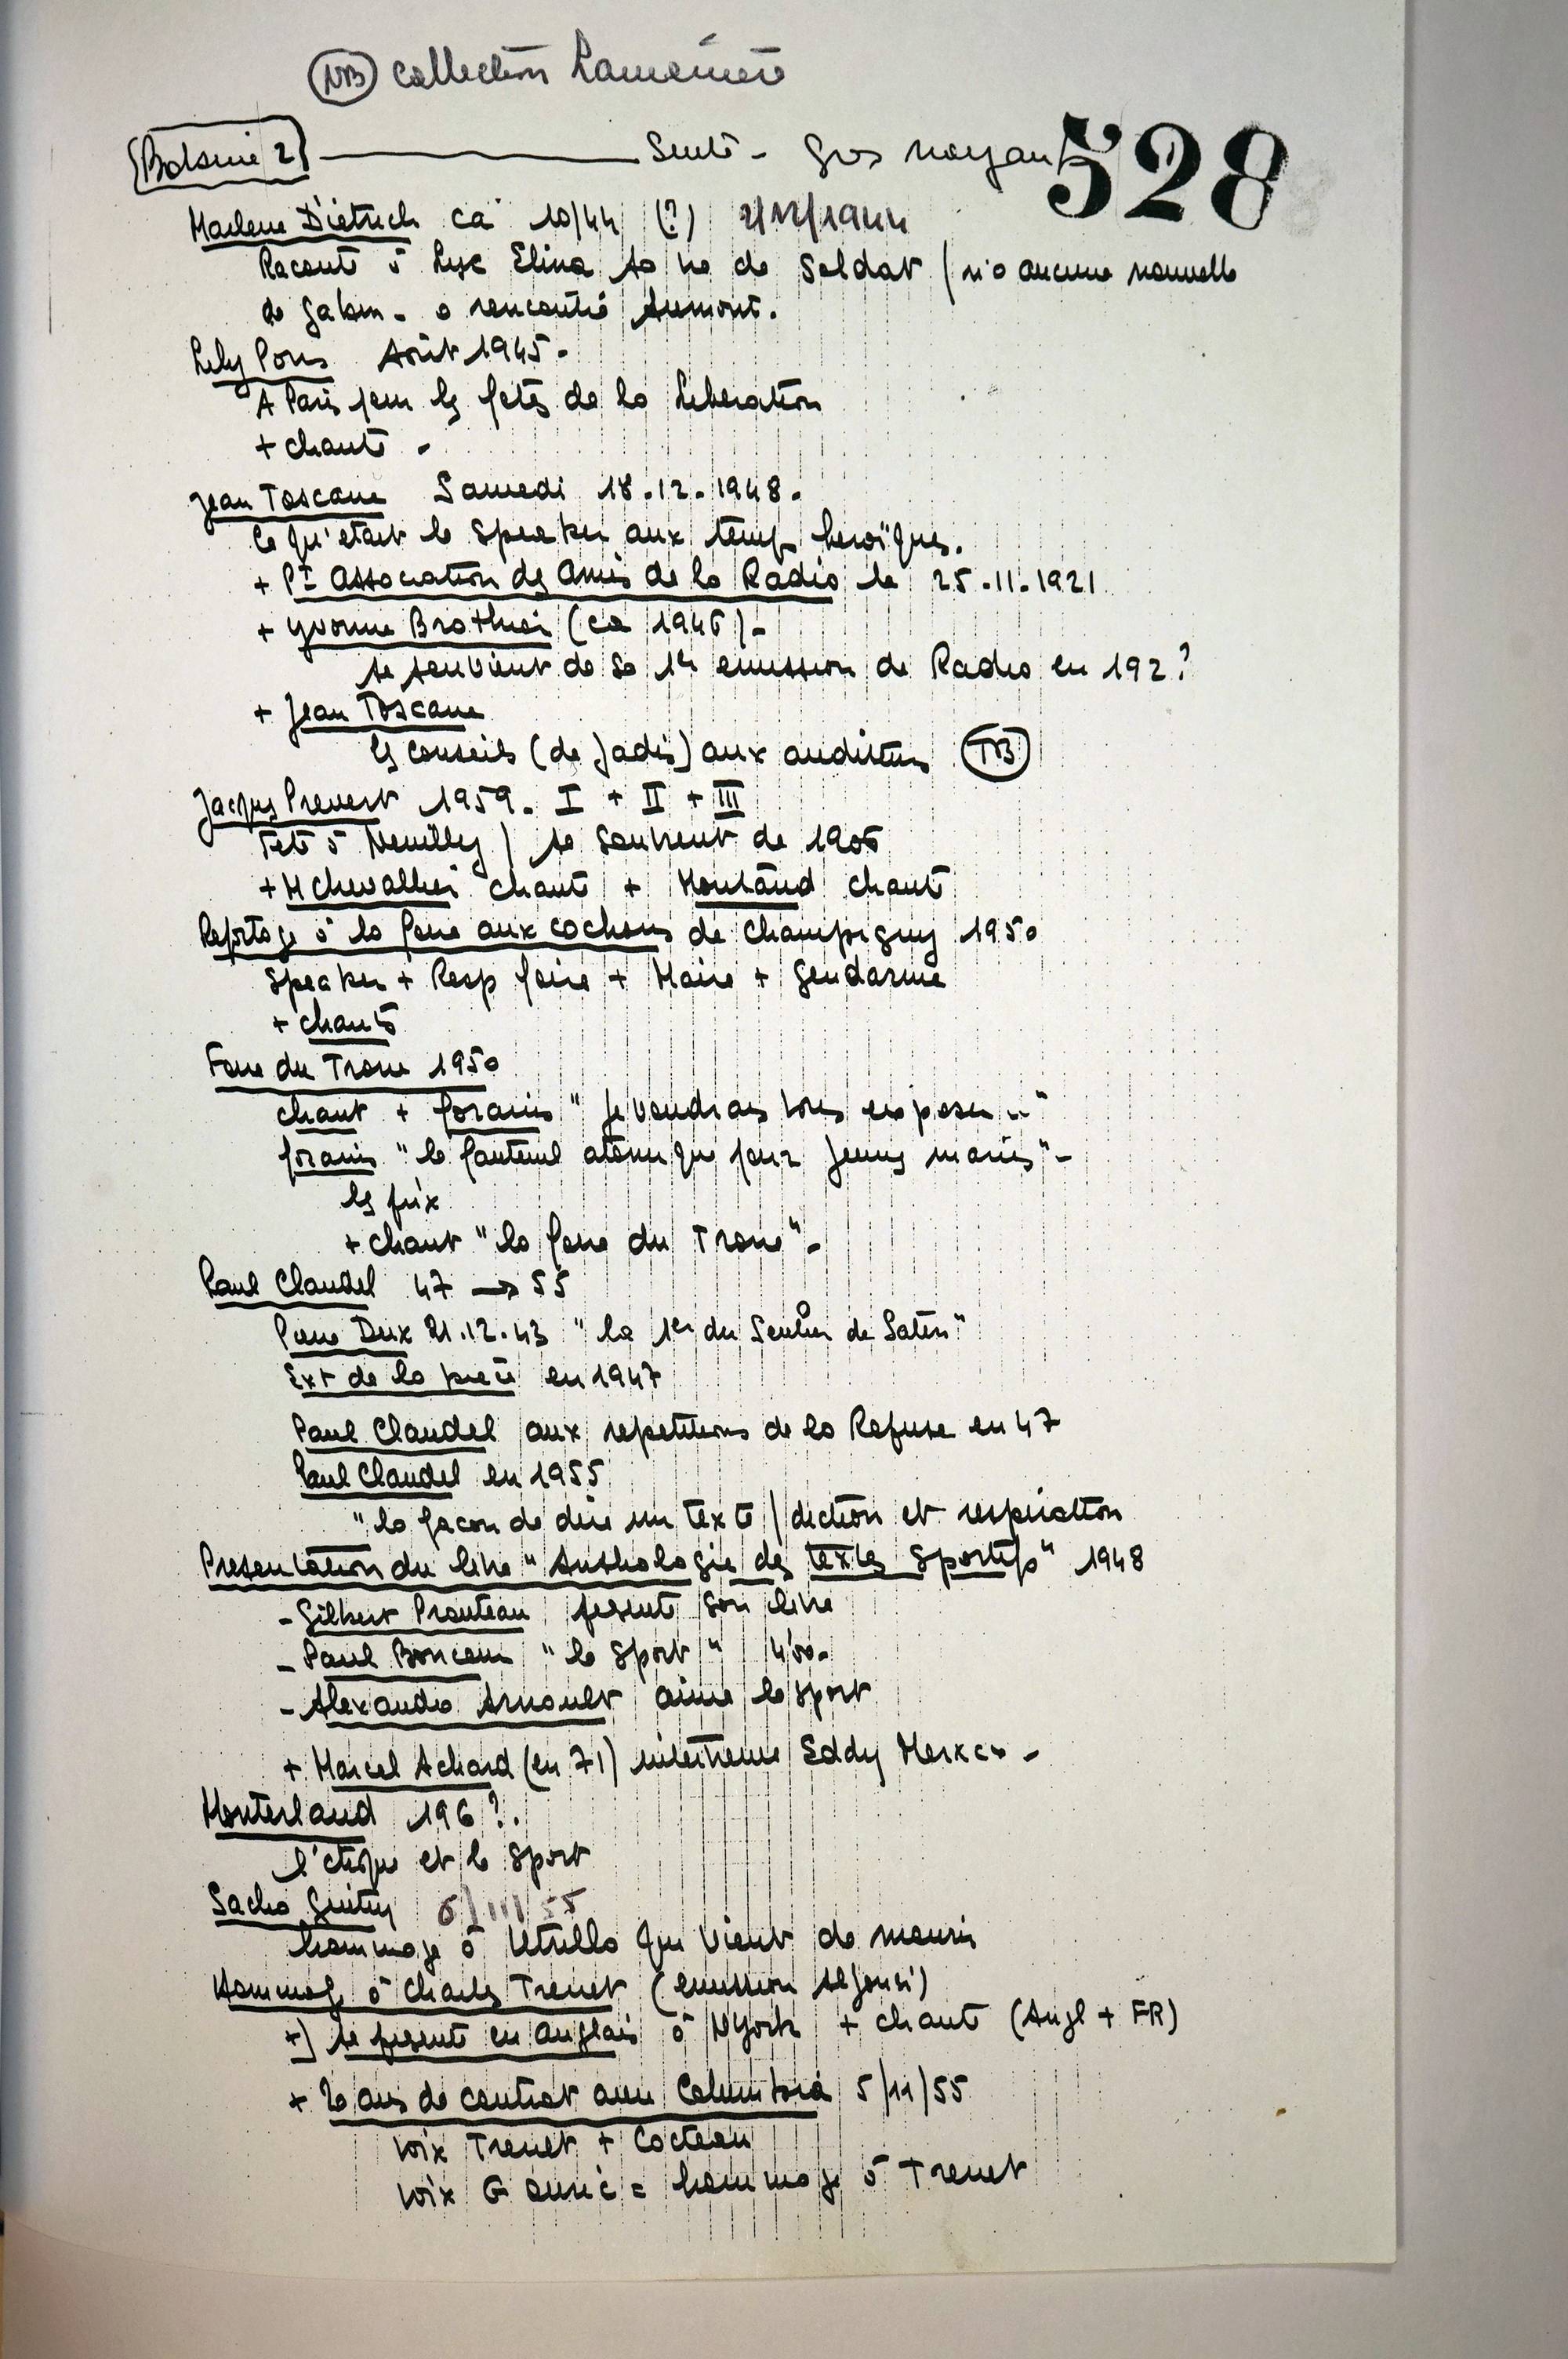 NB collection
Bobine 2 Suite - Gros noyau 528
Marlene Dietrich ca 10/44 (?) 2/12/1944
Raconte à Lyse Elina sa vie de Soldat / n'a aucune nouvelle
de Gabin - a rencontré Aumont.
Lily Pons Août 1945 -
A Paris pour les fetes de la Liberation
+ chante -
Jean Toscane Samedi 18.12.1948.
Ce qu'etait le Speaker aux temps heroïques.
+ Pt Association des Amis de la Radio le 25.11.1921
+ Yvonne Brothier (ca 1946) -
se souvient de sa 1ere emission de Radio en 192?
+ Jean Toscane
les conseils (de jadis) aux auditeurs TB
Jacques Prevert 1959. I + II + III
Fete à Neuilly / se souvient de 1906
+ M Chevallier chante + Montand chante
Reportage à la foire aux cochons de Champigny 1950
Speaker + Resp foire + Maire + Gendarme
+ chants
Foire du Trone 1950
chant + forains "Je voudrais vous exposer ..."
forains "le fauteuil atomique pour jeunes mariés" -
les prix
+ chant "la foire du Trone" -
Paul Claudel 47 → 55
Pierre Dux 21.12.43 "la 1ere du Soulier de Satin"
Ext de la piece en 1947
Paul Claudel aux repetitions de la Refuse en 47
Paul Claudel en 1955
"la facon de dire un texte / diction et respiration
Presentation du livre "Anthologie des textes Sportifs" 1948
- Gilbert Prouteau presente son livre
- Paul Boncour "le Sport" 4'00 -
- Alexandre Arnoult aime le sport
+ Marcel Achard (en 71) interviewe Eddy Merxcx -
Monterland 196?.
l'ethique et le Sport
Sacha Guitry 6/ 55
hommage à Utrillo qui vient de mourir
Hommage à Charles Trenet (emission)
+) se presente en anglais à NYork + chante (Angl + FR)
+ 20 ans de contrat avec Columbia 5/11/55
voix Trenet + Cocteau
voix G Auric = hommage à Trenet